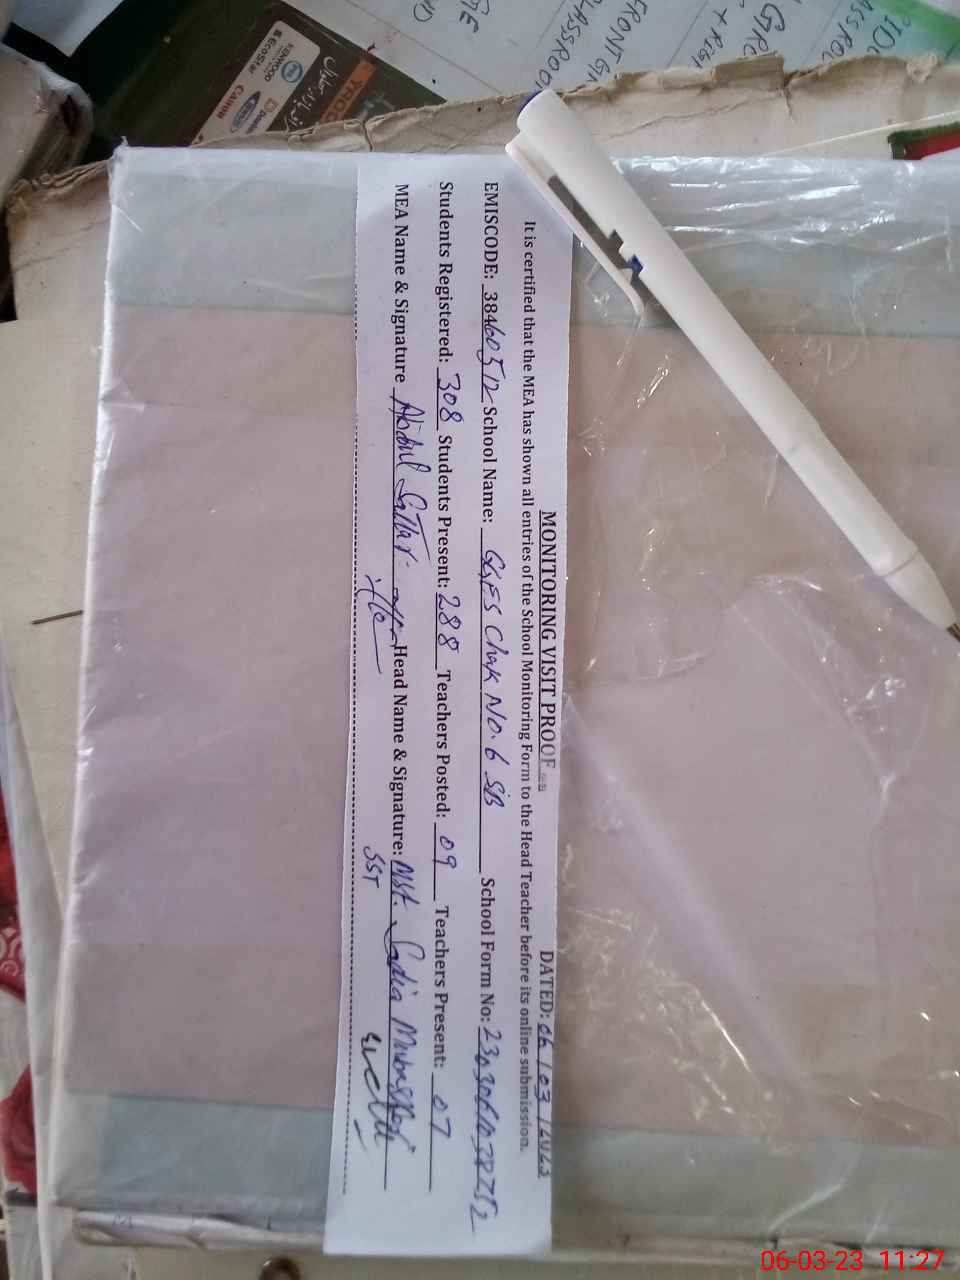 MONITORING VISIT PROOF DATED: 06/03/2023
It is certified that the MEA has shown all entries of the School Monitoring Form to the Head Teacher before its online submission.
EMISCODE: 38460512 School Name: GGES Chak No. 6 SB School Form No:
Students Registered: 308 Students Present: 288 Teachers Posted: 09 Teachers Present: 07
MEA Name & Signature Abdul Sattar Head Name & Signature: Mst. Sadia Mubashar
SST
KENWOOD
EcoStar
Canon
Dawlance
06-03-23 11:27